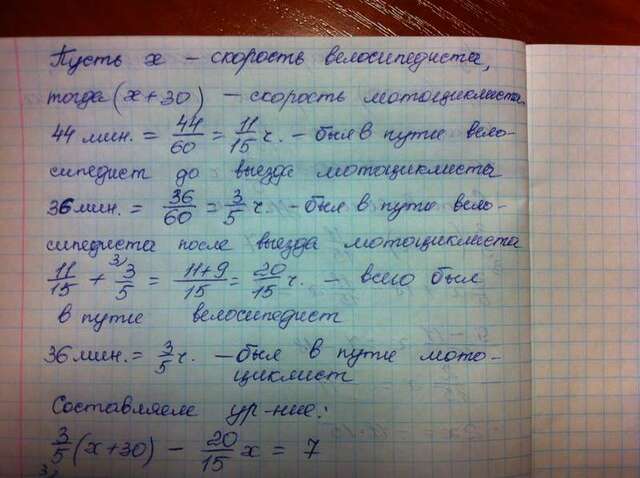 Пусть x – скорость велосипедиста,
тогда (x+30) – скорость мотоциклиста.
44 мин. = 44/60 = 11/15 ч. – был в пути вело-
сипедист до выезда мотоциклиста
36 мин. = 36/60 = 3/5 ч. – был в пути вело-
сипедиста после выезда мотоциклиста
11/15 + 3) 3/5 = 11+9/15 = 20/15 ч. – всего был
в пути велосипедист
36 мин. = 3/5 ч. – был в пути мото-
циклист
Составляем ур-ние:
3/5 (x+30) – 20/15 x = 7
3)